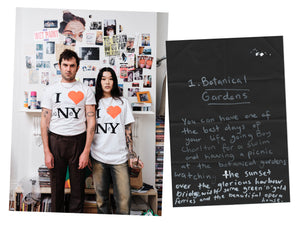 I
NY
I
NY
1. Botanical
Gardens
You can have one of
the best days of
your life going Boy
Charlton for a swim
and having a picnic
in the botanical gardens
watching the sunset
over the glorious harbour
bridge with some green n gold
ferries and the beautiful opera
house.